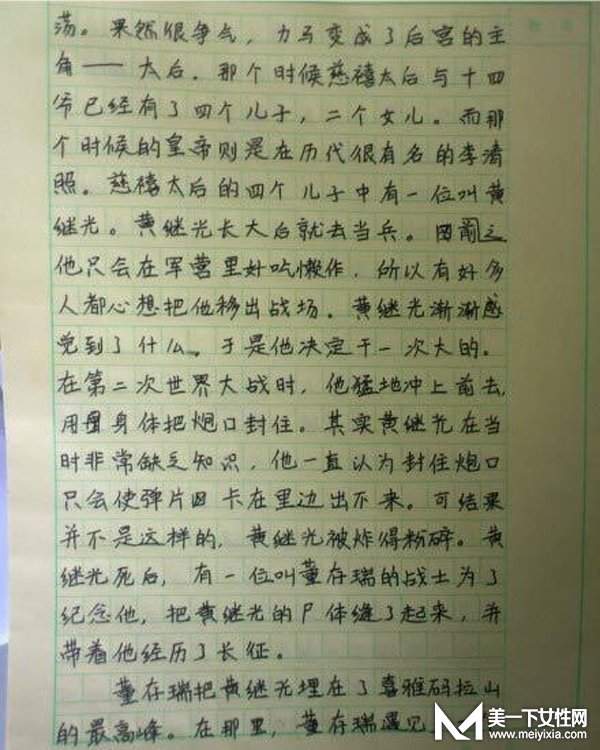 荡。果然很争气，力马变成了后宫的主
角——太后。那个时候慈禧太后与十四
爷已经有了四个儿子，二个女儿。而那
个时候的皇帝则是在历代很有名的李清
照。慈禧太后的四个儿子中有一位叫黄
继光。黄继光长大后就去当兵。由前之
他只会在军营里好吃懒作，所以有好多
人都心想把他移出战场。黄继光渐渐感
觉到了什么。于是他决定干一次大的。
在第二次世界大战时，他猛地冲上前去，
用身体把炮口封住。其实黄继光在当
时非常缺乏知识，他一直认为封住炮口
只会使弹片卡在里边出不来。可结果
并不是这样的，黄继光被炸得粉碎。黄
继光死后，有一位叫董存瑞的战士为了
纪念他，把黄继光的尸体缝了起来，并
带着他经历了长征。
董存瑞把黄继光埋在了喜雅码拉山
的最高峰。在那里，董存瑞遇见
美一下女性网
www.meiyixia.com